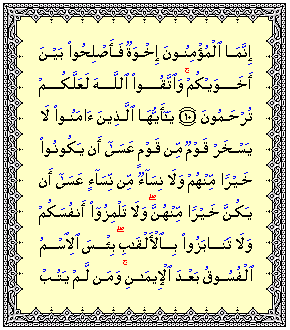 إِنَّمَا ٱلْمُؤْمِنُونَ إِخْوَةٌ فَأَصْلِحُوا۟ بَيْنَ
أَخَوَيْكُمْ ۚ وَٱتَّقُوا۟ ٱللَّهَ لَعَلَّكُمْ
تُرْحَمُونَ ١٠ يَـٰٓأَيُّهَا ٱلَّذِينَ ءَامَنُوا۟ لَا
يَسْخَرْ قَوْمٌ مِّن قَوْمٍ عَسَىٰٓ أَن يَكُونُوا۟
خَيْرًا مِّنْهُمْ وَلَا نِسَآءٌ مِّن نِّسَآءٍ عَسَىٰٓ أَن
يَكُنَّ خَيْرًا مِّنْهُنَّ ۖ وَلَا تَلْمِزُوٓا۟ أَنفُسَكُمْ
وَلَا تَنَابَزُوا۟ بِٱلْأَلْقَـٰبِ ۖ بِئْسَ ٱلِٱسْمُ
ٱلْفُسُوقُ بَعْدَ ٱلْإِيمَـٰنِ ۚ وَمَن لَّمْ يَتُبْ